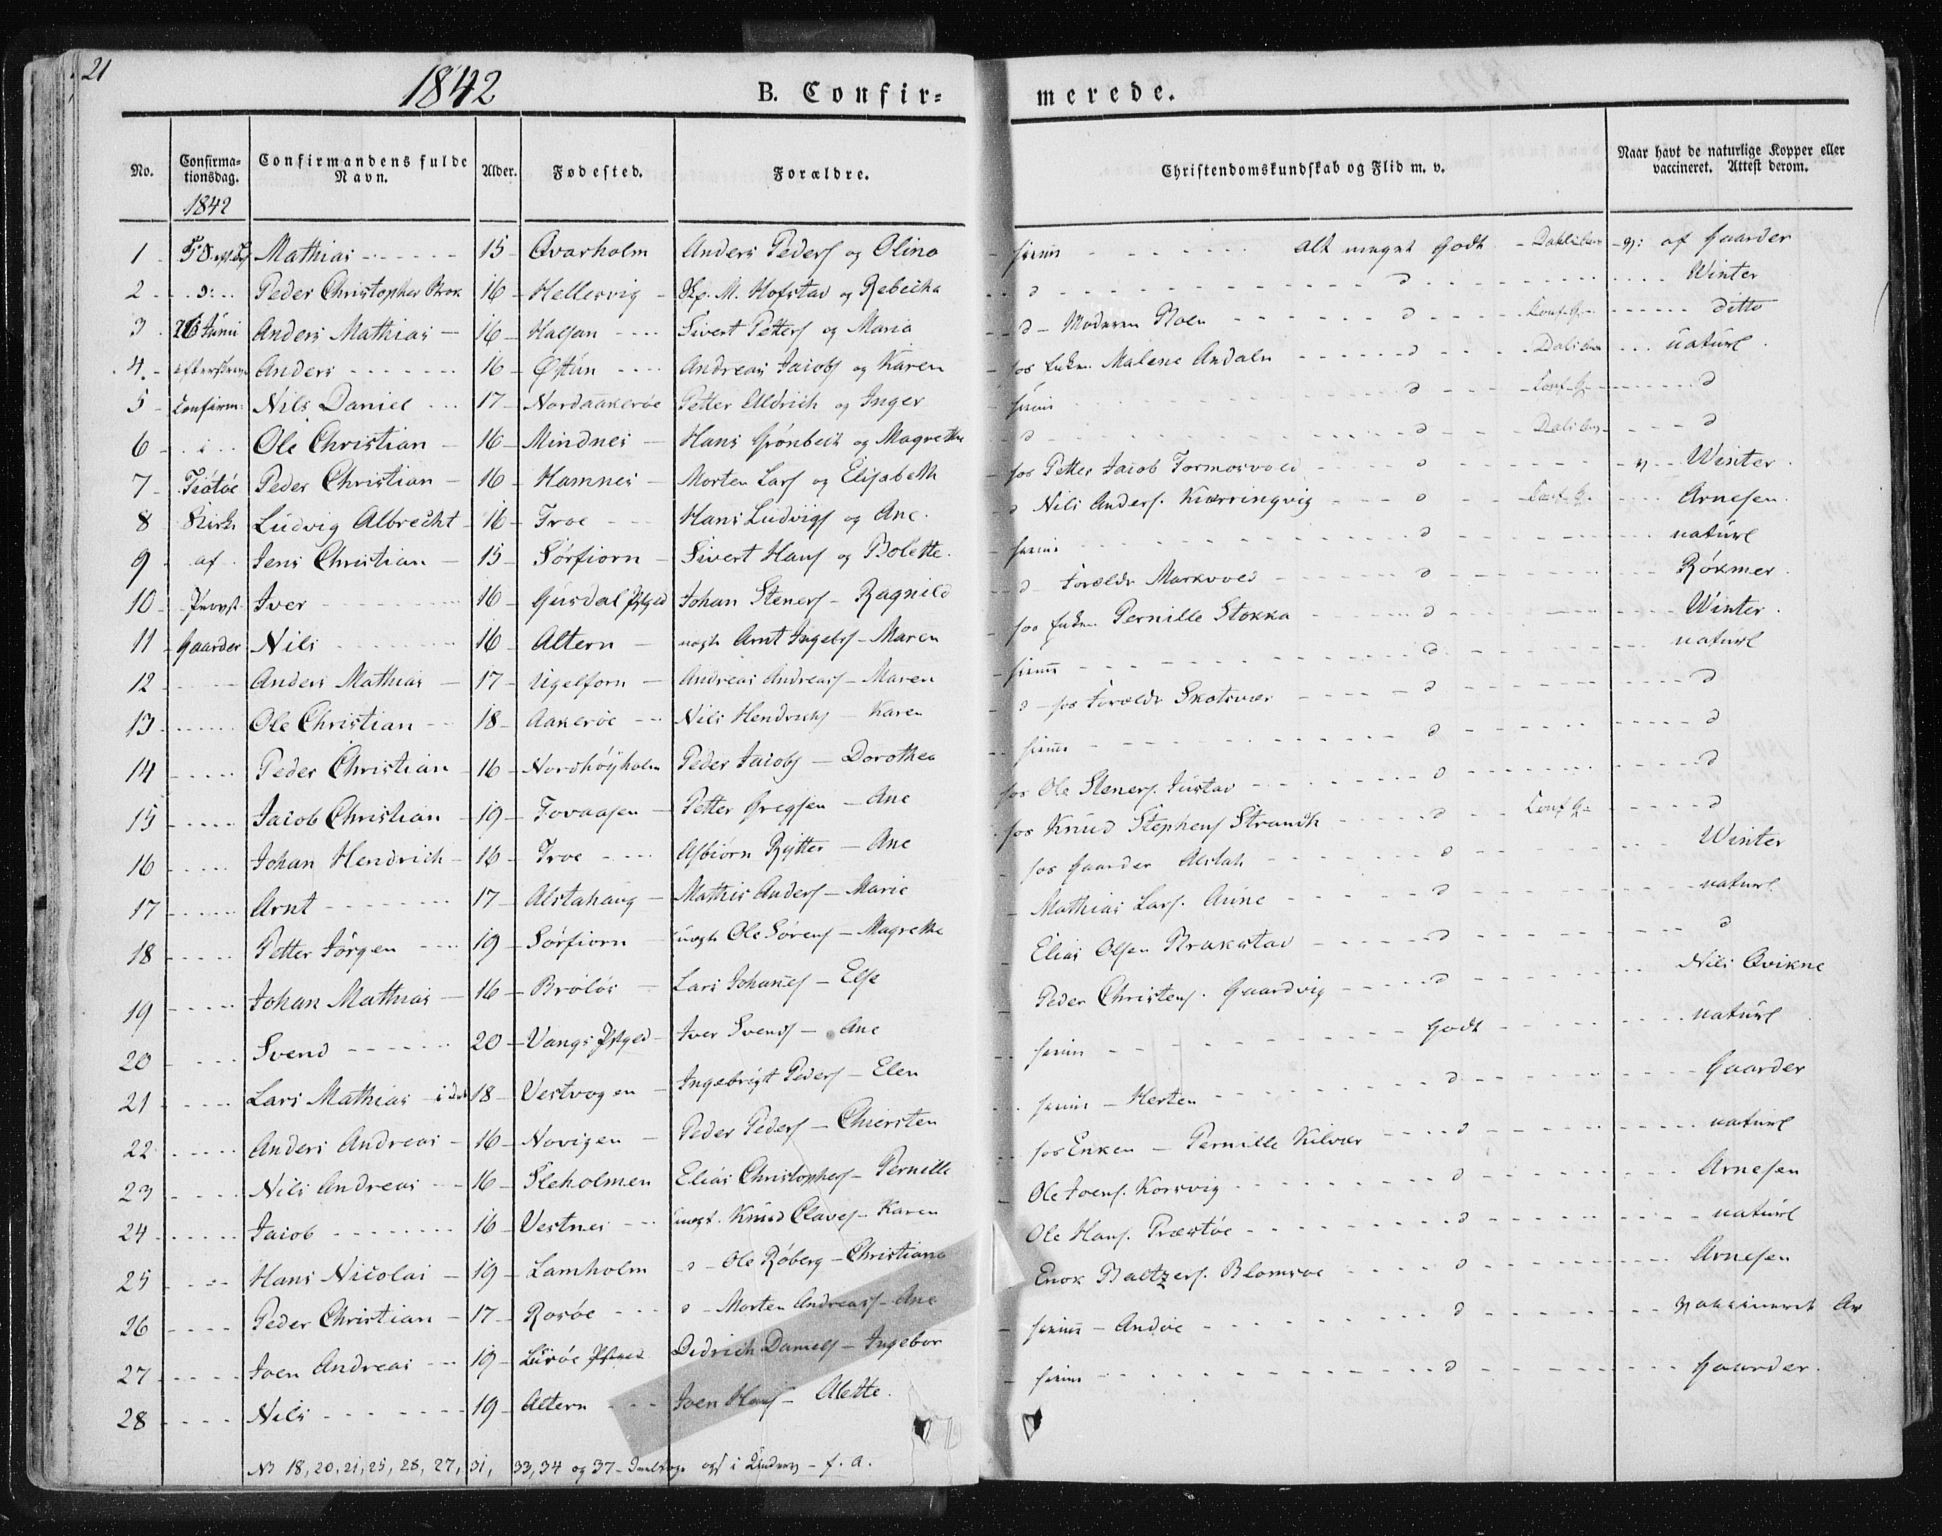 21
1842
B. Confir= merede.
No. Confirma-tionsdag. Confirmandens fulde Navn. Alder. Fødested. Forældre. Christendomskundskab og Flid m. v. Naar havt de naturlige Kopper eller vaccineret. Attest derom.
1842
1 Mathias 15 Qvarholm Anders Peders og Olina alt meget Godt af Gaarder
2 Peder Christopher 16 Hellesvig M. Hofstad og Rebecka d Winter
3 26 Juni Anders Mathias 16 Halsan Sivert Petters og Maria d ditto
4 Anders 16 Østun Andreas Jacobs og Karen hos Malene Andaln d naturl
5 Confirm: Nils Daniel 17 Nordaakerøe Petter Elldrich og Inger d d
6 i Ole Christian 16 Mindnes Hans Grønbeck og Magrethe d d
7 Tiøtøe Peder Christian 16 Hamnes Morten Lars og Elisabeth hos Petter Jacob Formosvold d Winter
8 Kirke Ludvig Albrecht 16 Troe Hans Ludvigs og Ane. d Nils Anders. Kiærringvig d Arnesen
9 af Jens Christian 15 Sørfiorn Sivert Hans og Bolette. d naturl
10 Provst Iver 16 Gusdal Johan Steners - Ragnild d Markvold d Røkmer
11 Gaarder Nils 16 Altern Arnt Ingebs - Maren hos Pernille Stokka d Winter
12 Anders Mathias 17 Ugelforn Andreas Andreas - Maren d naturl
13 Ole Christian 18 Aakerøe Nils Hendrichs - Karen d - hos Skotsvær d d
14 Peder Christian 16 Nordhøyholm Peder Jacobs - Dorothea d d
15 Jacob Christian 19 Tovaasen Petter Gregsen - Ane hos Ole Steners. d d
16 Johan Hendrich 16 Troe Asbiørn Rytter - Ane hos Knud Stephens Strandh d d
17 Arnt 17 Alstahaug Mathis Anders - Marie hos Gaarder Alstah d Winter
18 Petter Jørgen 19 Sørfiorn Ole Sørens - Magrethe Mathias Lars. Aune d naturl
19 Johan Mathias 16 Brøløs Lars Johans - Else Elias Olsen d d
20 Svend 20 Vangs Iver Svends - Ane Peder Christens. Gaardvig d Nils Qvikne
21 Lars Mathias 18 Vestvogen Ingebrigt Peders - Elen Godt naturl
22 Anders Andreas 16 Novigen Peder Peders - Chiersten Herten d Gaarder
23 Nils Andreas 16 Sleholmen Elias Christophers - Pernille hos Enken - Pernille Kilvær d naturl
24 Jacob 16 Vestnes Knud Olaves - Karen Ole Joens. Korsvig d Arnesen
25 Hans Nicolai 19 Lamholm d - Ole Røberg - Christiana Ole Hans. Præstøe d naturl
26 Peder Christian 17 Rosøe d - Morten Andreas - Ane Enok Baltzers. Blomsøe d Arnesen
27 Joen Andreas 19 Lurøe Didrich Daniels - Ingebor - Andøe d
28 Nils 19 Altern Joen Hans - Alette. d Gaarder.
18, 20, 21, 25, 28, 27, 31, 33, 34 og 37 i - f. a.